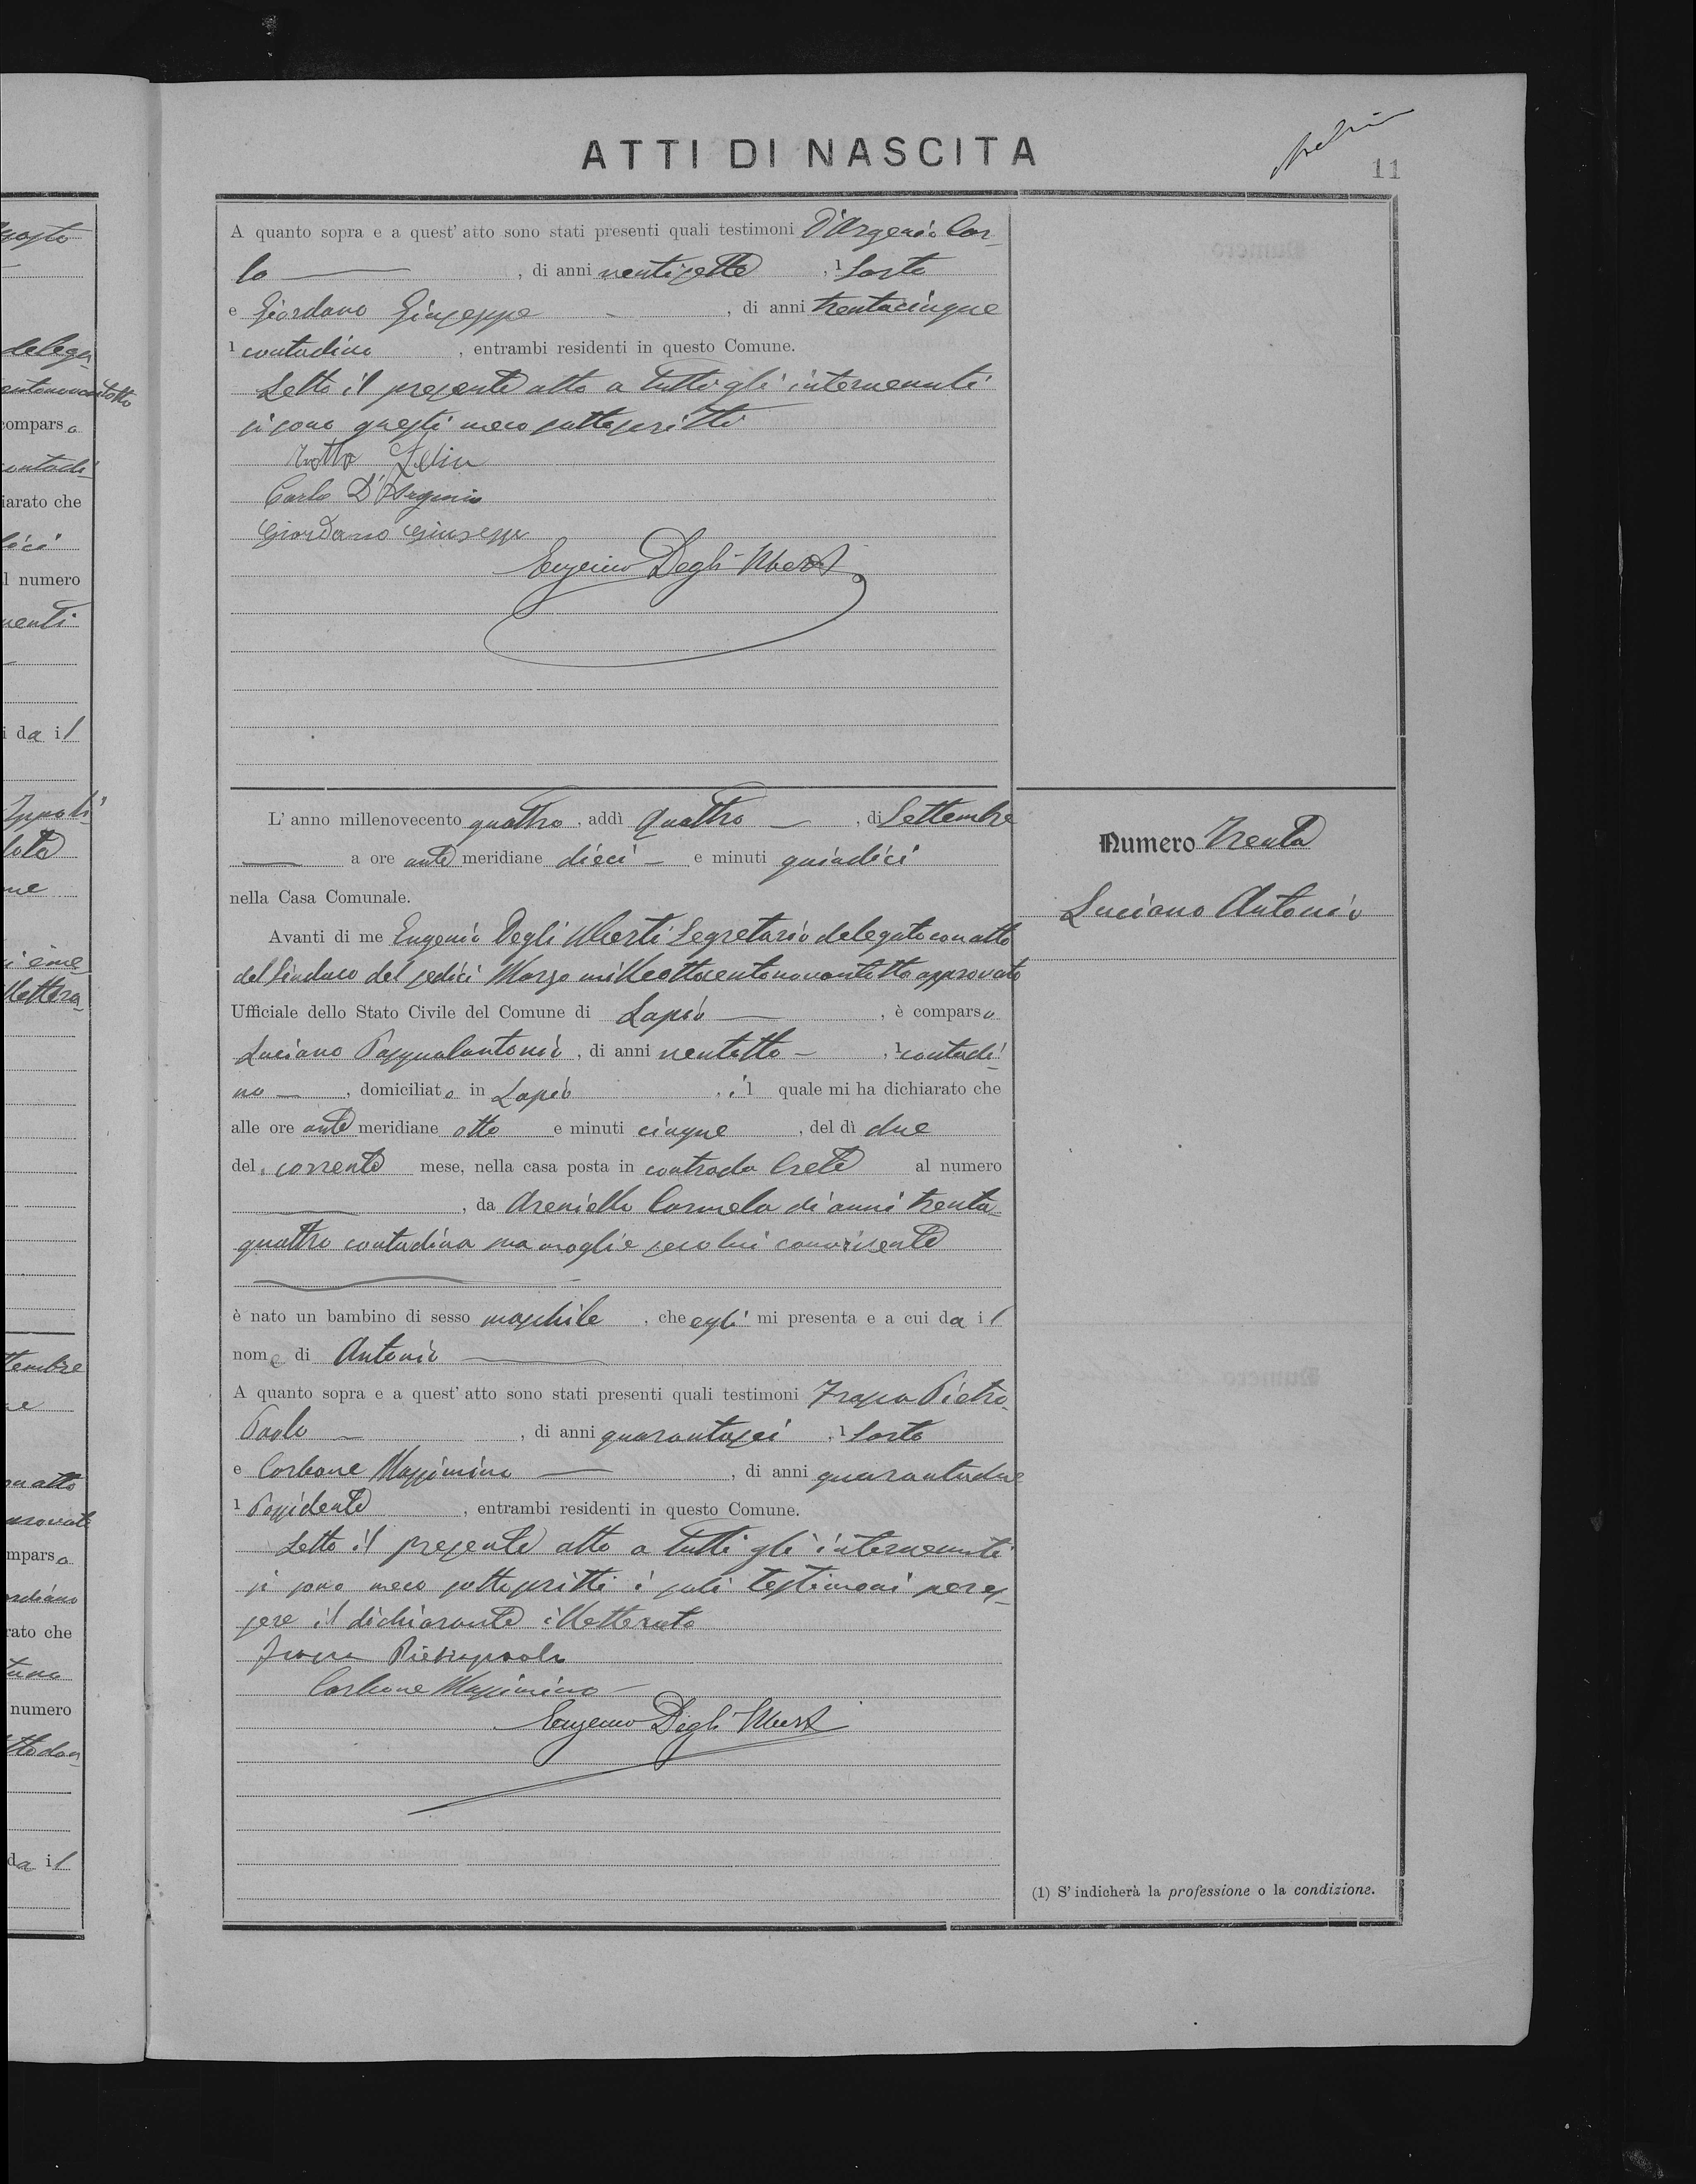 ATTI DI NASCITA
11
A quanto sopra e a quest' atto sono stati presenti quali testimoni D'Argenio Car-
lo , di anni ventisette , 1 Sarto
e Giordano Giuseppe , di anni trentacinque
1 contadino , entrambi residenti in questo Comune.
Letto il presente atto a tutti gli intervenuti
si sono questi meco sottoscritti
Carlo D'Argenio
Giordano Giuseppe
Eugenio Degli Uberti
L' anno millenovecento quattro , addì quattro , di Settembre
a ore ante meridiane dieci e minuti quindici
nella Casa Comunale.
Avanti di me Eugenio Degli Uberti Segretario delegato con atto
del Sindaco del sedici Marzo milleottocentonovantotto approvato
Ufficiale dello Stato Civile del Comune di Lapio , è comparso
Luciano Pasqualantonio , di anni ventotto , 1 contadi-
no , domiciliato in Lapio , il quale mi ha dichiarato che
alle ore ante meridiane otto e minuti cinque , del dì due
del corrente mese, nella casa posta in contrada Crete al numero
, da Areniello Carmela di anni trenta-
quattro contadina sua moglie seco lui convivente
è nato un bambino di sesso maschile , che egli mi presenta e a cui da il
nome di Antonio
A quanto sopra e a quest' atto sono stati presenti quali testimoni Pietro
Paolo , di anni quarantasei , 1 Sarto
e Carbone Massimino , di anni quarantadue
1 Possidente , entrambi residenti in questo Comune.
Letto il presente atto a tutti gli intervenuti
si sono meco sottoscritti i soli testimoni per es-
sere il dichiarante illetterato
Pietropaolo
Carbone Massimino
Eugenio Degli Uberti
Numero Trenta
Luciano Antonio
(1) S' indicherà la professione o la condizione.